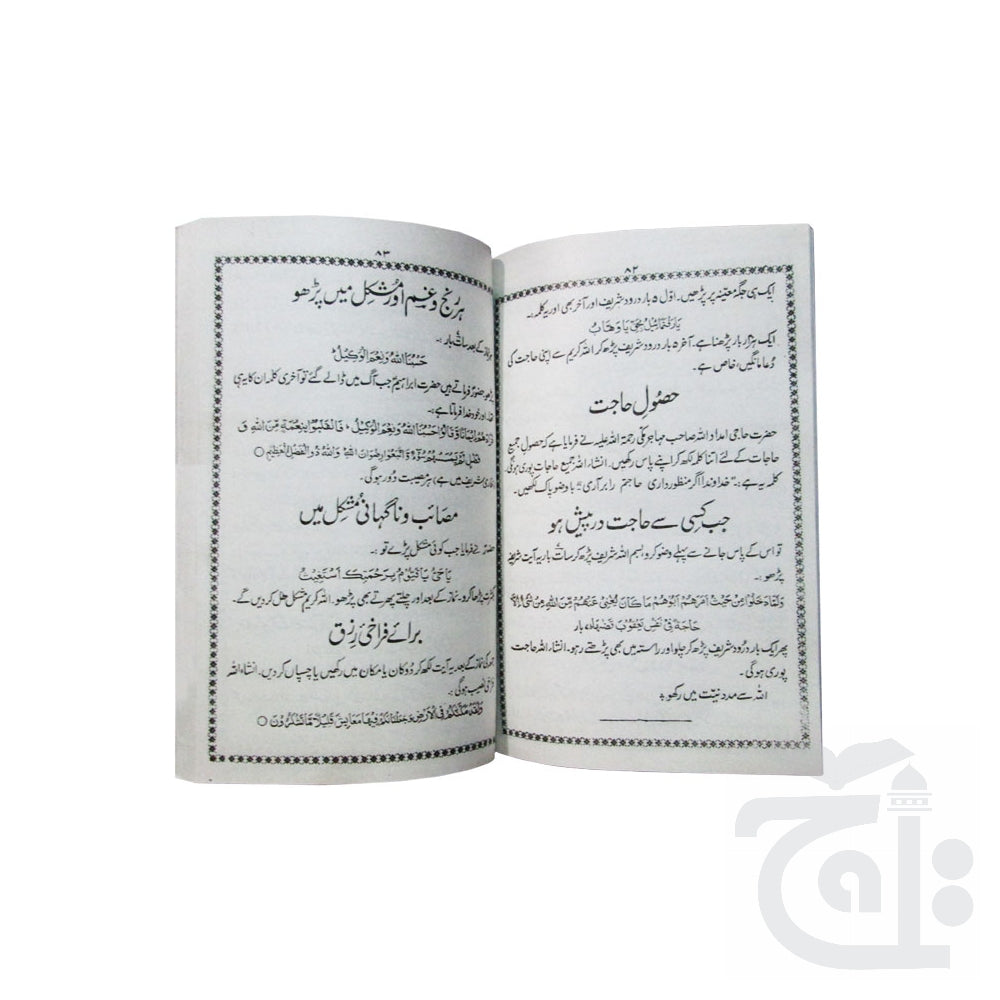 ۸۲
ایک ہی جگہ معینہ پر پڑھیں۔ اوّل ۵ بار درود شریف اور آخر بھی اور یہ کلمہ:۔
یا وَھَّابُ
ایک ہزار بار پڑھنا ہے۔ آخر ۵ بار درود شریف پڑھ کر اللہ کریم سے اپنی حاجت کی
دُعا مانگیں، خاص ہے۔
حصُولِ حاجت
حضرت حاجی امداد اللہ صاحب مہاجر مکی رحمۃ اللہ علیہ نے فرمایا ہے کہ حصولِ جمیع
حاجات کے لئے اتنا کلمہ لکھ کر اپنے پاس رکھیں۔ انشاء اللہ جمیع حاجات پوری ہوگی۔
کلمہ یہ ہے:۔ "خداوندا اگر منظور داری حاجتم را بر آری" با وضو پاک لکھیں۔
جب کِسی سے حاجت درپیش ہو
تو اس کے پاس جانے سے پہلے وضو کرو بسم اللہ شریف پڑھ کر سات بار یہ آیت شریفہ
پڑھو:۔
وَلَمَّا دَخَلُوْا مِنْ حَيْثُ اَمَرَهُمْ اَبُوْهُمْ مَا كَانَ يُغْنِيْ عَنْهُمْ مِّنَ اللهِ مِنْ شَيْءٍ اِلَّا
حَاجَةً فِيْ نَفْسِ يَعْقُوْبَ قَضٰهَا، بار
پھر ایک بار دُرود شریف پڑھ کر جاؤ اور راستہ میں بھی پڑھتے رہو۔ انشاء اللہ حاجت
پوری ہوگی۔
اللہ سے مدد نیّت میں رکھو
۸۳
ہر رنج و غم اور مُشکِل میں پڑھو
نماز کے بعد سات بار:۔
حَسْبُنَا اللهُ وَنِعْمَ الْوَكِيْلُ
حضور فرماتے ہیں حضرت ابراہیم جب آگ میں ڈالے گئے تو آخری کلمہ ان کا یہ ہی
اور خود خدا فرماتا ہے:۔
فَزَادَهُمْ اِيْمَانًا وَّقَالُوْا حَسْبُنَا اللهُ وَنِعْمَ الْوَكِيْلُ، فَانْقَلَبُوْا بِنِعْمَةٍ مِّنَ اللهِ وَ
فَضْلٍ لَّمْ يَمْسَسْهُمْ سُوْءٌ وَّاتَّبَعُوْا رِضْوَانَ اللهِ وَاللهُ ذُو الْفَضْلِ الْعَظِيْمِ ○
بخاری شریف میں ہے) ہر مصیبت دُور ہوگی۔
مصَائب و ناگہانی مُشکِل میں
حضور نے فرمایا جب کوئی مشکل پڑے تو:۔
يَا حَيُّ يَا قَيُّوْمُ بِرَحْمَتِكَ اَسْتَغِيْثُ
کثرت پڑھا کرو۔ نماز کے بعد اور چلتے پھرتے بھی پڑھو۔ اللہ کریم مشکل حل کر دیں گے۔
برائے فراخیِ رزق
نماز کے بعد یہ آیت لکھ کر دُوکان یا مکان میں رکھیں یا چسپاں کر دیں۔ انشاء اللہ
نصیب ہوگی:۔
وَلَقَدْ مَكَّنّٰكُمْ فِي الْاَرْضِ وَجَعَلْنَا لَكُمْ فِيْهَا مَعَايِشَ قَلِيْلًا مَّا تَشْكُرُوْنَ ○